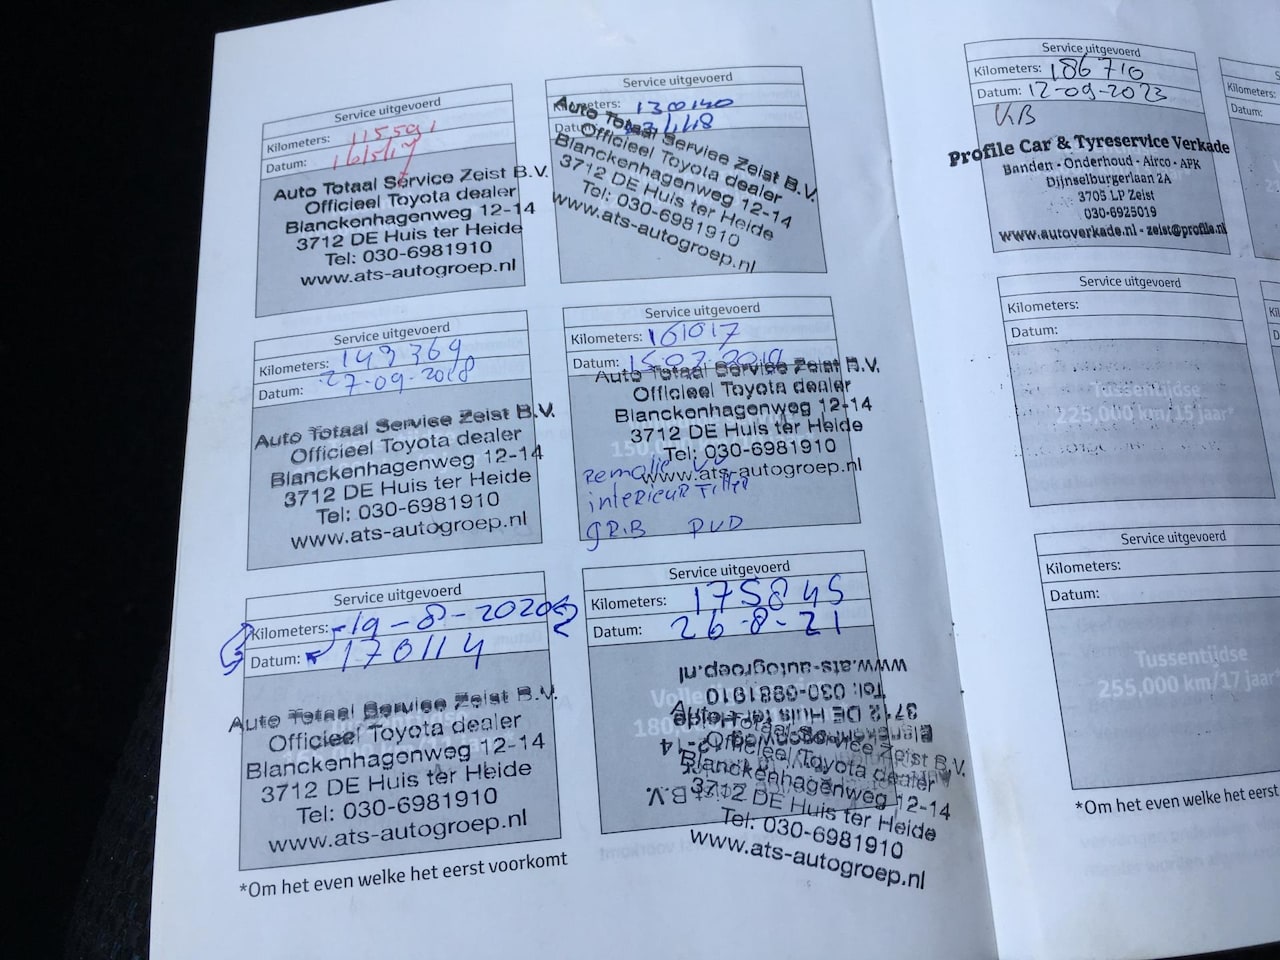 Service uitgevoerd
Kilometers: 115591
Datum: 16/5/17
Auto Totaal Service Zeist B.V.
Officieel Toyota dealer
Blanckenhagenweg 12-14
3712 DE Huis ter Heide
Tel: 030-6981910
www.ats-autogroep.nl
Service uitgevoerd
Kilometers: 130140
Auto Totaal Service Zeist B.V.
Officieel Toyota dealer
Blanckenhagenweg 12-14
3712 DE Huis ter Heide
Tel: 030-6981910
www.ats-autogroep.nl
Service uitgevoerd
Kilometers: 149369
Datum: 27-09-2018
Auto Totaal Service Zeist B.V.
Officieel Toyota dealer
Blanckenhagenweg 12-14
3712 DE Huis ter Heide
Tel: 030-6981910
www.ats-autogroep.nl
Service uitgevoerd
Kilometers: 161017
Datum: 15.07.2019
Auto Totaal Service Zeist B.V.
Officieel Toyota dealer
Blanckenhagenweg 12-14
3712 DE Huis ter Heide
Tel: 030-6981910
www.ats-autogroep.nl
interieur Filter
Service uitgevoerd
Kilometers: 19-8-2020
Datum: 170114
Auto Totaal Service Zeist B.V.
Officieel Toyota dealer
Blanckenhagenweg 12-14
3712 DE Huis ter Heide
Tel: 030-6981910
www.ats-autogroep.nl
Service uitgevoerd
Kilometers: 175845
Datum: 26-8-21
www.ats-autogroep.nl
Tel: 030-6981910
3712 DE Huis ter Heide
Auto Totaal Service Zeist B.V.
Officieel Toyota dealer
Blanckenhagenweg 12-14
3712 DE Huis ter Heide
Tel: 030-6981910
www.ats-autogroep.nl
*Om het even welke het eerst voorkomt
Service uitgevoerd
Kilometers: 186710
Datum: 12-09-2023
KB
Profile Car & Tyreservice Verkade
Banden - Onderhoud - Airco - APK
Dijnselburgerlaan 2A
3705 LP Zeist
030-6925019
www.autoverkade.nl - zeist@profile.nl
Service uitgevoerd
Kilometers:
Datum:
Tussentijdse
225,000 km/15 jaar*
Service uitgevoerd
Kilometers:
Datum:
Tussentijdse
255,000 km/17 jaar*
*Om het even welke het eerst
Kilometers:
Datum: